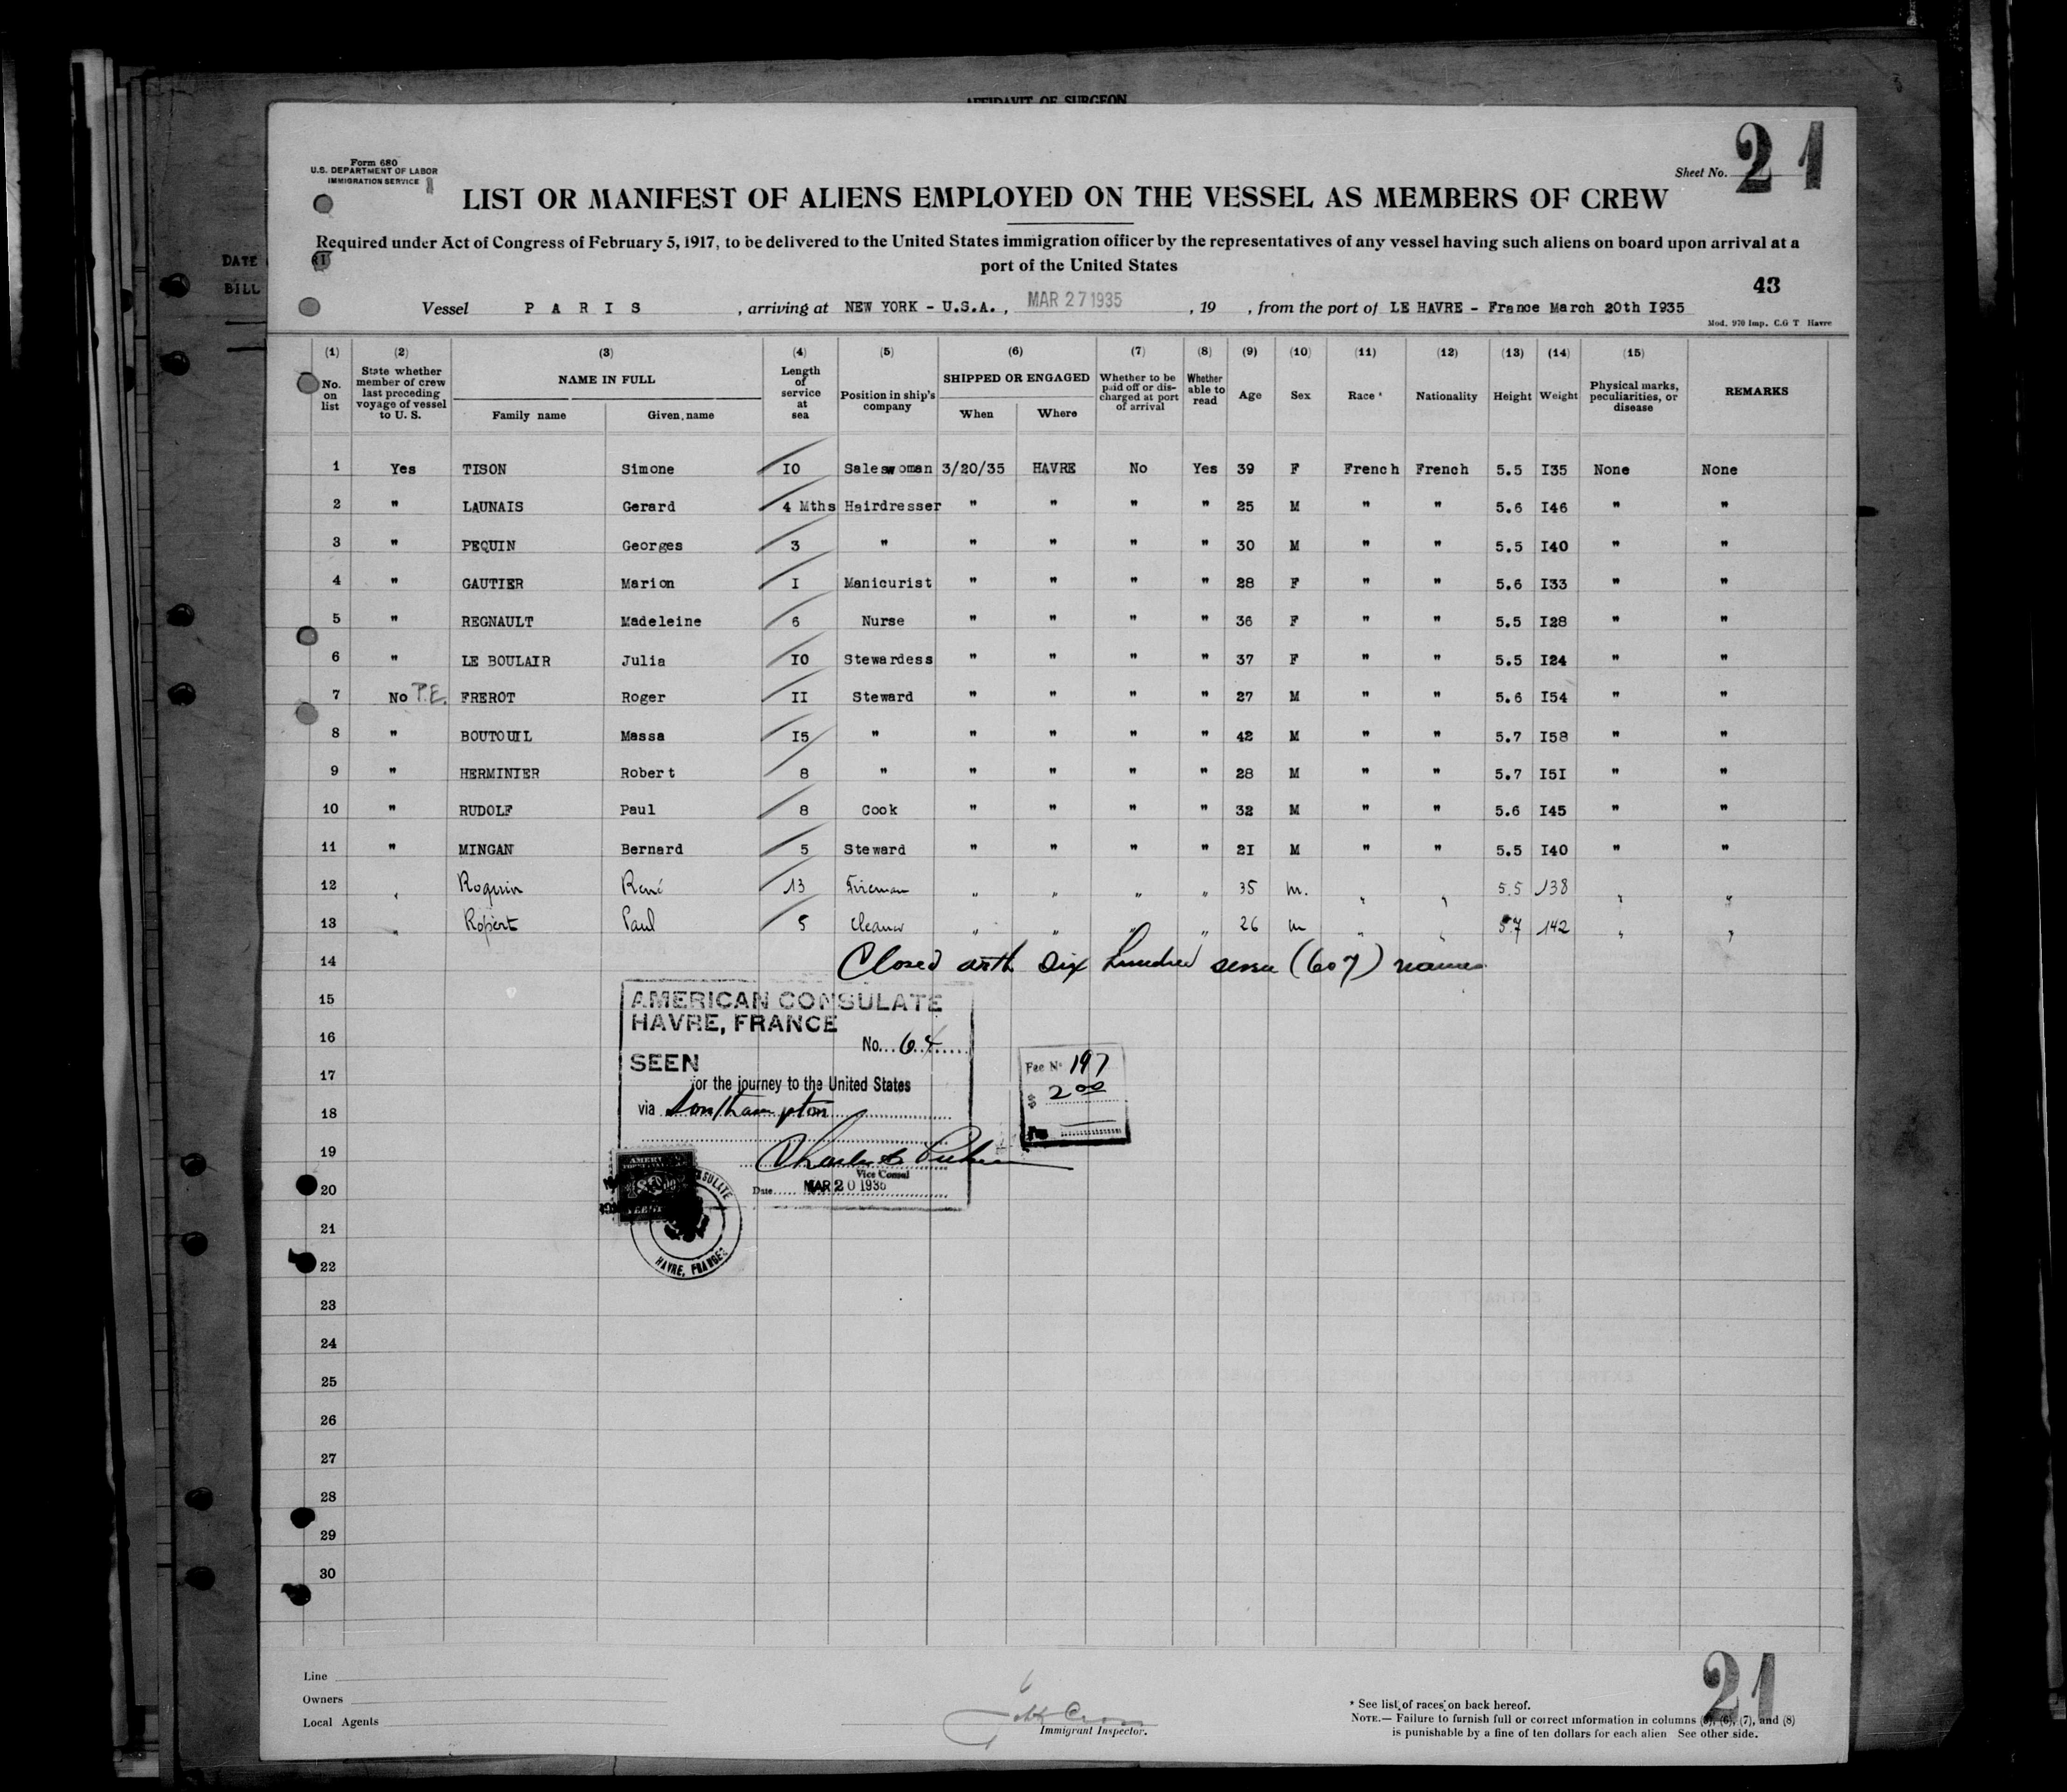 AFFIDAVIT OF SURGEON
DATE
BILL
Form 680
U.S. DEPARTMENT OF LABOR
IMMIGRATION SERVICE
Sheet No. 21
LIST OR MANIFEST OF ALIENS EMPLOYED ON THE VESSEL AS MEMBERS OF CREW
Required under Act of Congress of February 5, 1917, to be delivered to the United States immigration officer by the representatives of any vessel having such aliens on board upon arrival at a
port of the United States
43
Vessel P A R I S , arriving at NEW YORK - U.S.A. , MAR 27 1935 , 19 , from the port of LE HAVRE - France March 20th I935
Mod. 970 Imp. C.G T Havre
(1) No. on list (2) State whether member of crew last preceding voyage of vessel to U. S. (3) NAME IN FULL Family name Given name (4) Length of service at sea (5) Position in ship's company (6) SHIPPED OR ENGAGED When Where (7) Whether to be paid off or discharged at port of arrival (8) Whether able to read (9) Age (10) Sex (11) Race * (12) Nationality (13) Height (14) Weight (15) Physical marks, peculiarities, or disease REMARKS
1 Yes TISON Simone I0 Saleswoman 3/20/35 HAVRE No Yes 39 F French French 5.5 I35 None None
2 " LAUNAIS Gerard 4 Mths Hairdresser " " " " 25 M " " 5.6 I46 " "
3 " PEQUIN Georges 3 " " " " " 30 M " " 5.5 I40 " "
4 " GAUTIER Marion I Manicurist " " " " 28 F " " 5.6 I33 " "
5 " REGNAULT Madeleine 6 Nurse " " " " 36 F " " 5.5 I28 " "
6 " LE BOULAIR Julia I0 Stewardess " " " " 37 F " " 5.5 I24 " "
7 No P.E. FREROT Roger II Steward " " " " 27 M " " 5.6 I54 " "
8 " BOUTOUIL Massa I5 " " " " " 42 M " " 5.7 I58 " "
9 " HERMINIER Robert 8 " " " " " 28 M " " 5.7 I5I " "
10 " RUDOLF Paul 8 Cook " " " " 32 M " " 5.6 I45 " "
11 " MINGAN Bernard 5 Steward " " " " 2I M " " 5.5 I40 " "
12 " Roguin René 13 Fireman " " " " 35 m. " " 5.5 138 " "
13 " Ropert Paul 5 Cleaner " " " " 26 m " " 5.7 142 " "
14 Closed with six hundred seven (607) names
15
16
17
18
19
20
21
22
23
24
25
26
27
28
29
30
AMERICAN CONSULATE
HAVRE, FRANCE
No. 64
SEEN
for the journey to the United States
via Southampton
Charles
Vice Consul
Date MAR 20 1935
Fee No 197
$ 2 00
HAVRE, FRANCE
Line
Owners
Local Agents
Immigrant Inspector.
* See list of races on back hereof.
NOTE.— Failure to furnish full or correct information in columns (5), (6), (7), and (8)
is punishable by a fine of ten dollars for each alien See other side.
21